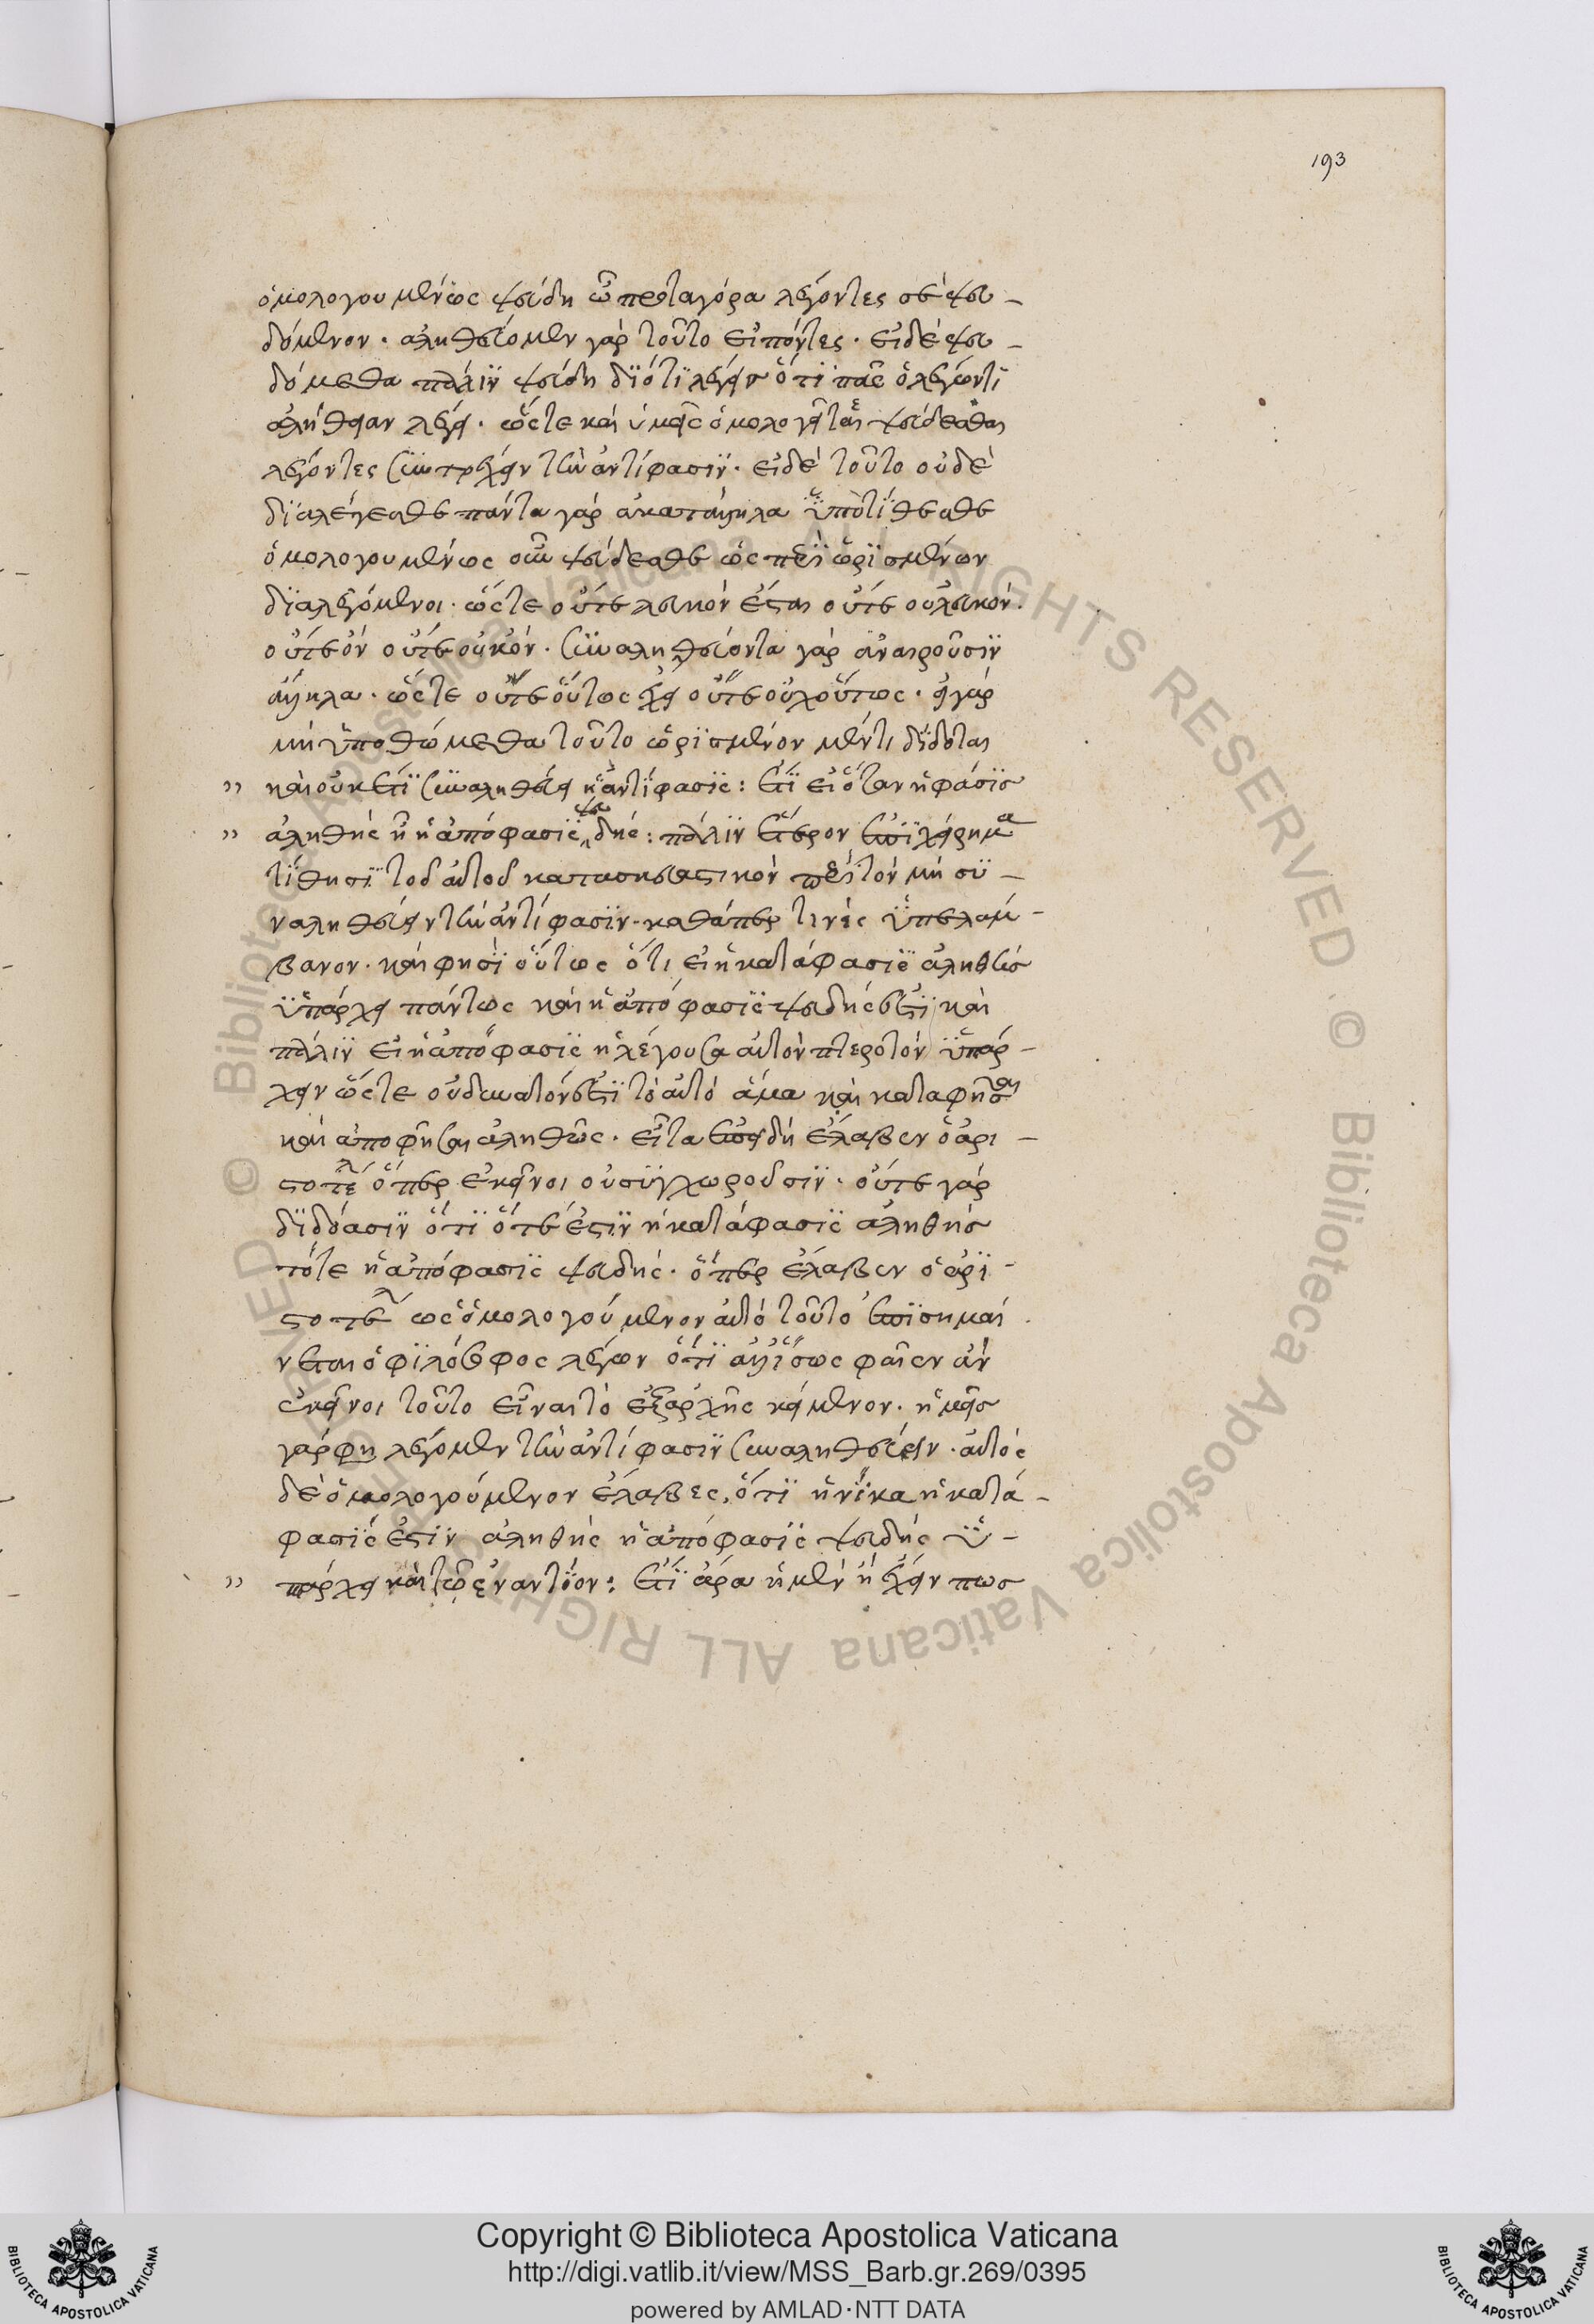 193
ὁμολογουμένως ψεύδη ὦ πρωταγόρα λέγοντες σὲ ψευ-
δόμενον· ἀληθεύομεν γὰρ τοῦτο εἰπόντες· εἰ δὲ ψευ-
δόμεθα πάλιν ψεύδη διότι λέγειν ὅτι πᾶς ὁ λέγων τι
ἀλήθειαν λέγει· ὥστε καὶ ὑμεῖς ὁμολογεῖται ψεύδεσθαι
λέγοντες συντρέχειν τὴν ἀντίφασιν· εἰ δὲ τοῦτο οὐδὲ
διαλέγεσθε πάντα γὰρ ἀκατάλληλα ὑποτίθεσθε
ὁμολογουμένως οὖν ψεύδεσθε ὡς περὶ ὡρισμένων
διαλεγόμενοι· ὥστε οὔτε λευκὸν ἔσται οὔτε οὐ λευκόν·
οὔτε ὂν οὔτε οὐκ ὄν· συναληθεύοντα γὰρ ἀναιροῦσιν
ἄλληλα· ὥστε οὔτε οὕτως ἔχει οὔτε οὐχ οὕτως· εἰ γὰρ
μὴ ὑποθώμεθα τοῦτο ὡρισμένον μέν τι δίδοται
" καὶ οὐκέτι συναληθεύει ἡ ἀντίφασις: ἔτι εἰ ὅταν ἡ φάσις
" ἀληθὴς ᾖ ἡ ἀπόφασις ψευδής: πάλιν ἕτερον ἐπιχείρημα
τίθησι τοῦ αὐτοῦ κατασκευαστικὸν περὶ τὸν μὴ συ-
ναληθεύειν τὴν ἀντίφασιν καθάπερ τινὲς ὑπελάμ-
βανον· καὶ φησὶ οὕτως ὅτι εἰ ἡ κατάφασις ἀληθὴς
ὑπάρχει πάντως καὶ ἡ ἀπόφασις ψευδής ἐστι καὶ
πάλιν εἰ ἡ ἀπόφασις ἡ λέγουσα αὐτὸν πτερωτὸν ὑπάρ-
χειν ὥστε οὐ δυνατόν ἐστι τὸ αὐτὸ ἅμα καὶ καταφῆσαι
καὶ ἀποφῆσαι ἀληθῶς· εἶτα ἐπειδὴ ἔλαβεν ὁ ἀρι-
στοτέλ ὅπερ ἐκεῖνοι οὐ συγχωροῦσιν· οὔτε γὰρ
διδόασιν ὅτι ὅτε ἔστιν ἡ κατάφασις ἀληθὴς
τότε ἡ ἀπόφασις ψευδής· ὅπερ ἔλαβεν ὁ ἀρι-
στοτέλ ὡς ὁμολογούμενον αὐτὸ τοῦτο ἐπισημαί
νεται ὁ φιλόσοφος λέγων ὅτι ἀλλ' ἴσως φαῖεν ἂν
ἐκεῖνοι τοῦτο εἶναι τὸ ἐξ ἀρχῆς κείμενον· ἡμεῖς
γὰρ φη λέγομεν τὴν ἀντίφασιν συναληθεύειν· αὐτὸς
δὲ ὁμολογούμενον ἔλαβες, ὅτι ἡνίκα ἡ κατά-
φασίς ἐστιν ἀληθὴς ἡ ἀπόφασις ψευδὴς ὑ-
" πάρχει καὶ τῷ ἐναντίον: ἔτι ἆρα ἡ μὲν ἢ ἔχειν πως
Copyright © Biblioteca Apostolica Vaticana
http://digi.vatlib.it/view/MSS_Barb.gr.269/0395
powered by AMLAD·NTT DATA
BIBLIOTECA APOSTOLICA VATICANA
BIBLIOTECA APOSTOLICA VATICANA
© Biblioteca Apostolica Vaticana ALL RIGHTS RESERVED
© Biblioteca Apostolica Vaticana ALL RIGHTS RESERVED